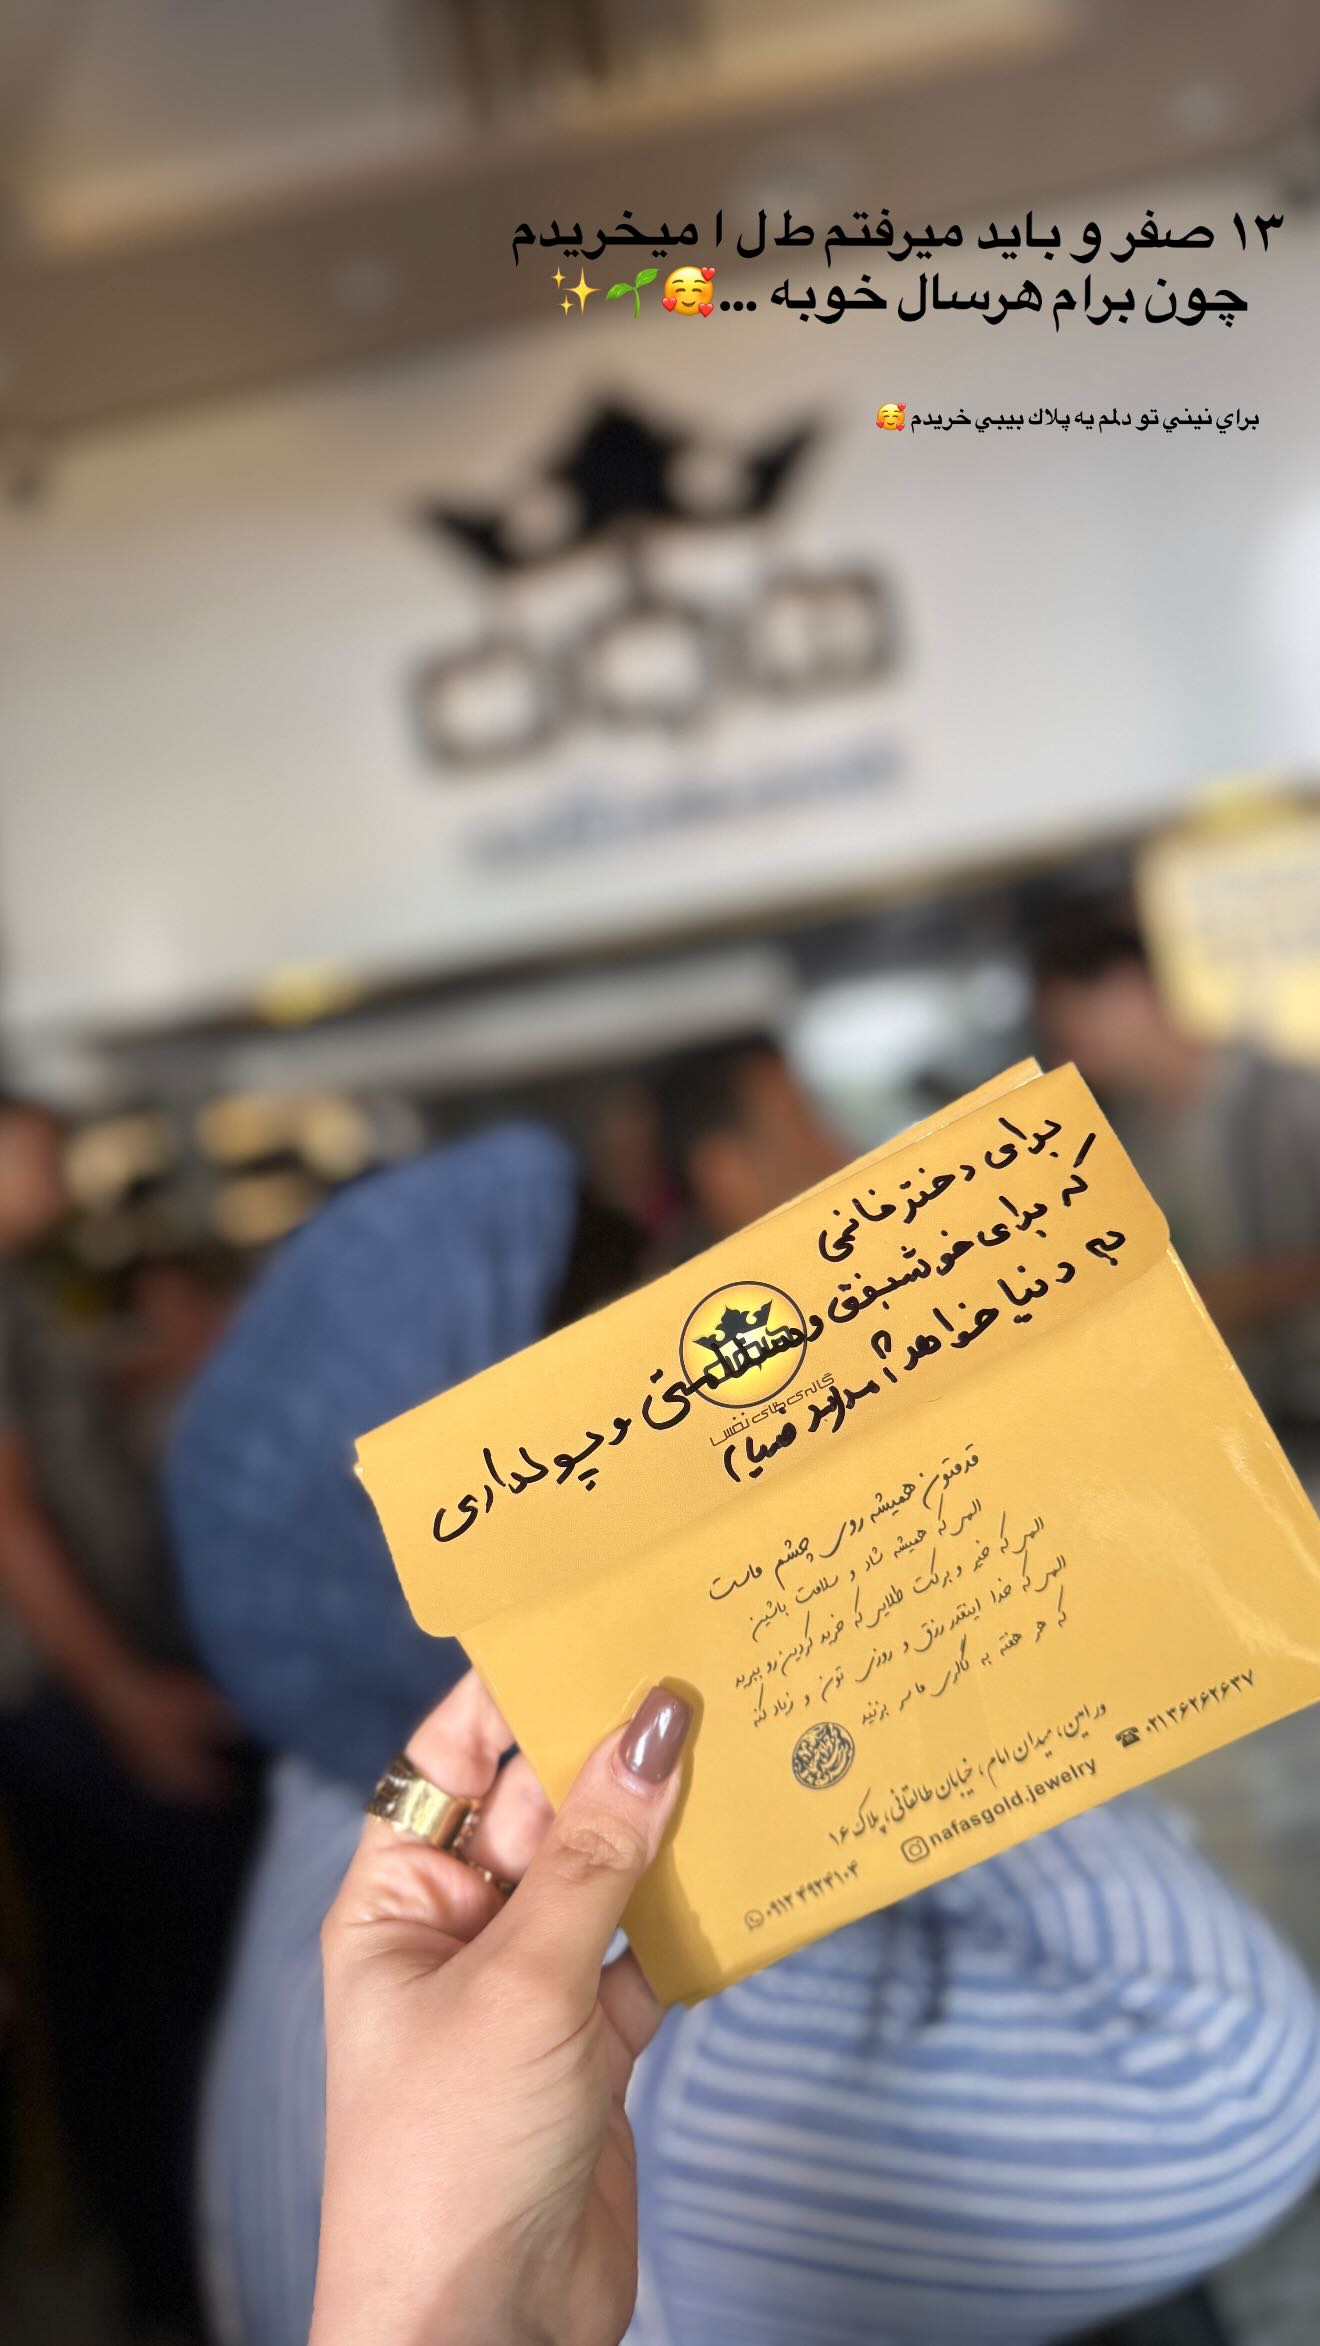 ۱۳ صفر و باید میرفتم ط ل ا میخریدم
چون برام هرسال خوبه ...🥰🌱✨
براي نيني تو دلم يه پلاك بيبي خريدم 🥰
برای دختر خانمی
که برای خوشبختی و سلامتی و پولداری
به دنیا خواهد آمد
گالری طلای نفس
قدمتون همیشه روی چشم ماست
الهی که همیشه شاد و سلامت باشین
الهی که خیر و برکت طلایی که خرید کردین رو ببرید
الهی که خدا اینقدر رزق و روزی تون و زیاد کنه
که هر هفته به گالری ما سر بزنید
ورامین، میدان امام، خیابان طالقانی، پلاک ۱۶
۰۲۱۳۶۲۶۲۶۳۷
nafasgold.jewelry
۰۹۱۲۴۹۲۴۱۰۴